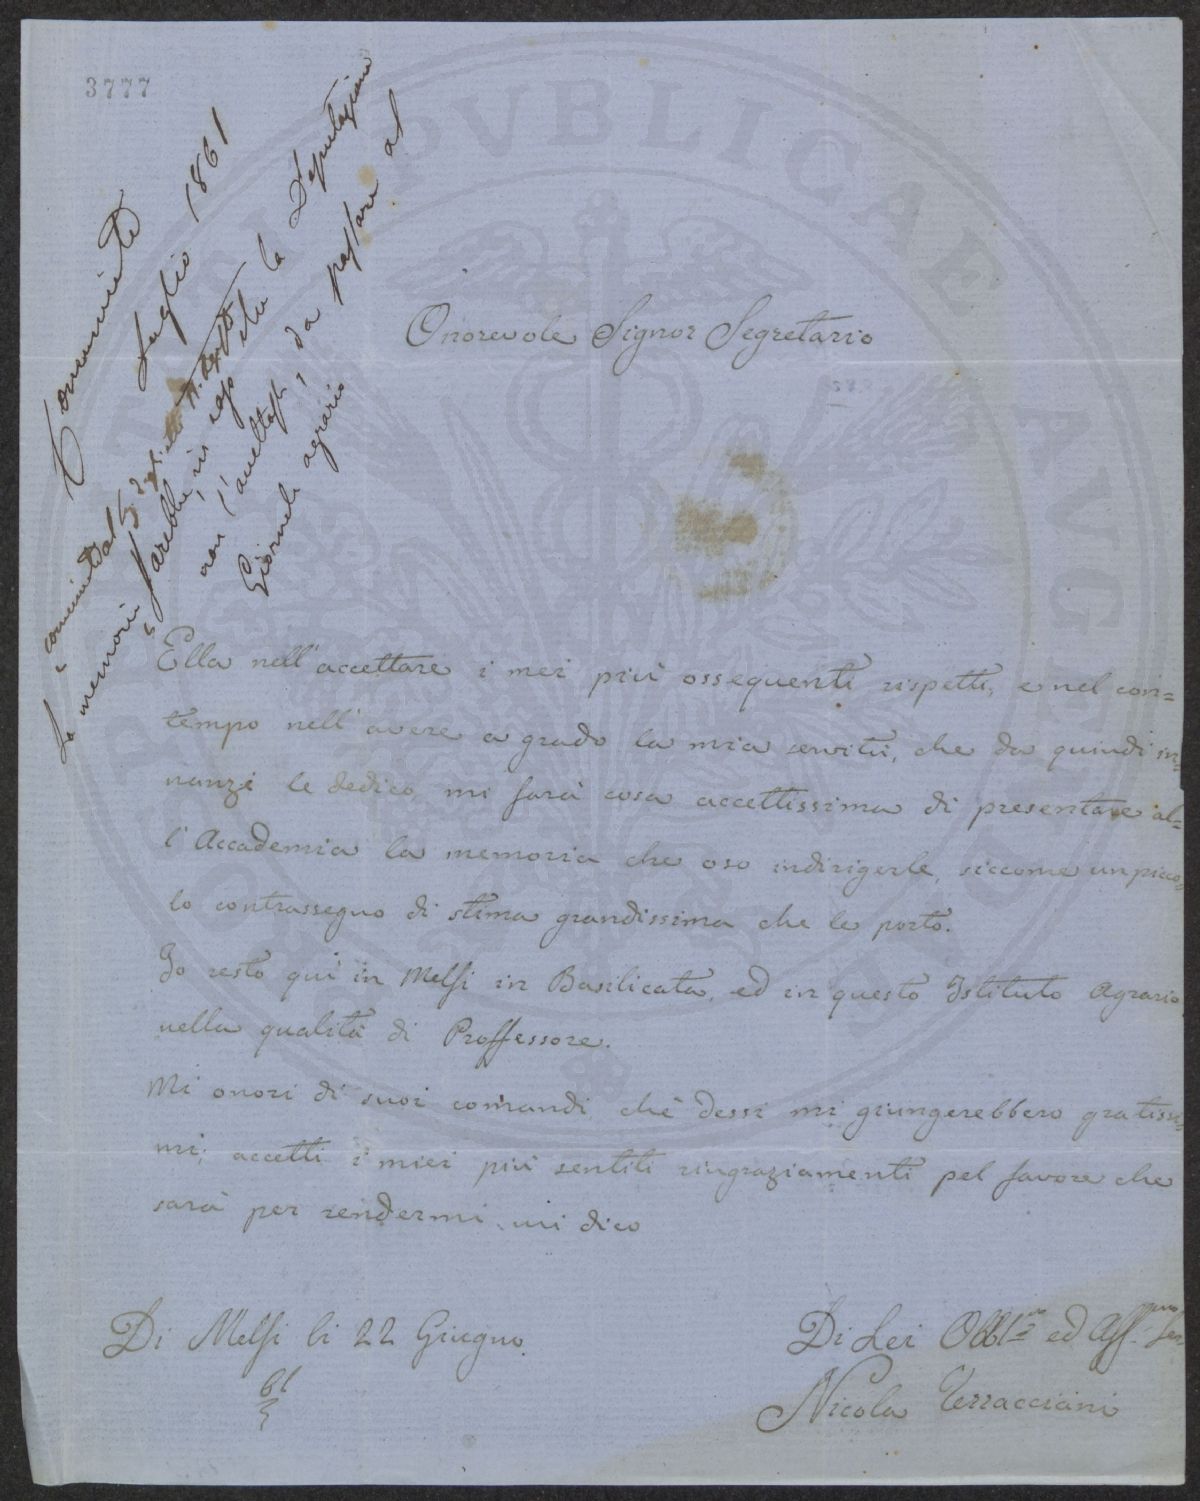 3777
Comunicata
Luglio 1861
la memoria sarebbe, in caso che la Deputazione
non l'accettasse, da passare al
Giornale agrario
Onorevole Signor Segretario
Ella nell'accettare i mei più ossequenti rispetti, e nel con=
tempo nell'avere a grado la mia servitù, che da quindi in=
nanzi le dedico, mi farà cosa accettissima di presentare al=
l'Accademia la memoria che oso indirigerle, siccome un picco=
lo contrassegno di stima grandissima che le porto.
Io resto quì in Melfi in Basilicata, ed in questo Istituto Agrario
nella qualità di Proffessore.
Mi onori di suoi comandi chè dessi mi giungerebbero gratissi=
mi; accetti i miei più sentiti ringraziamenti pel favore che
sarà per rendermi, mi dico
Di Melfi li 22 Giugno
61
Di Lei Obbl.mo ed Aff.mo
Nicola Terracciani